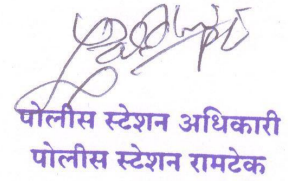 पोलीस स्टेशन अधिकारी
पोलीस स्टेशन रामटेक